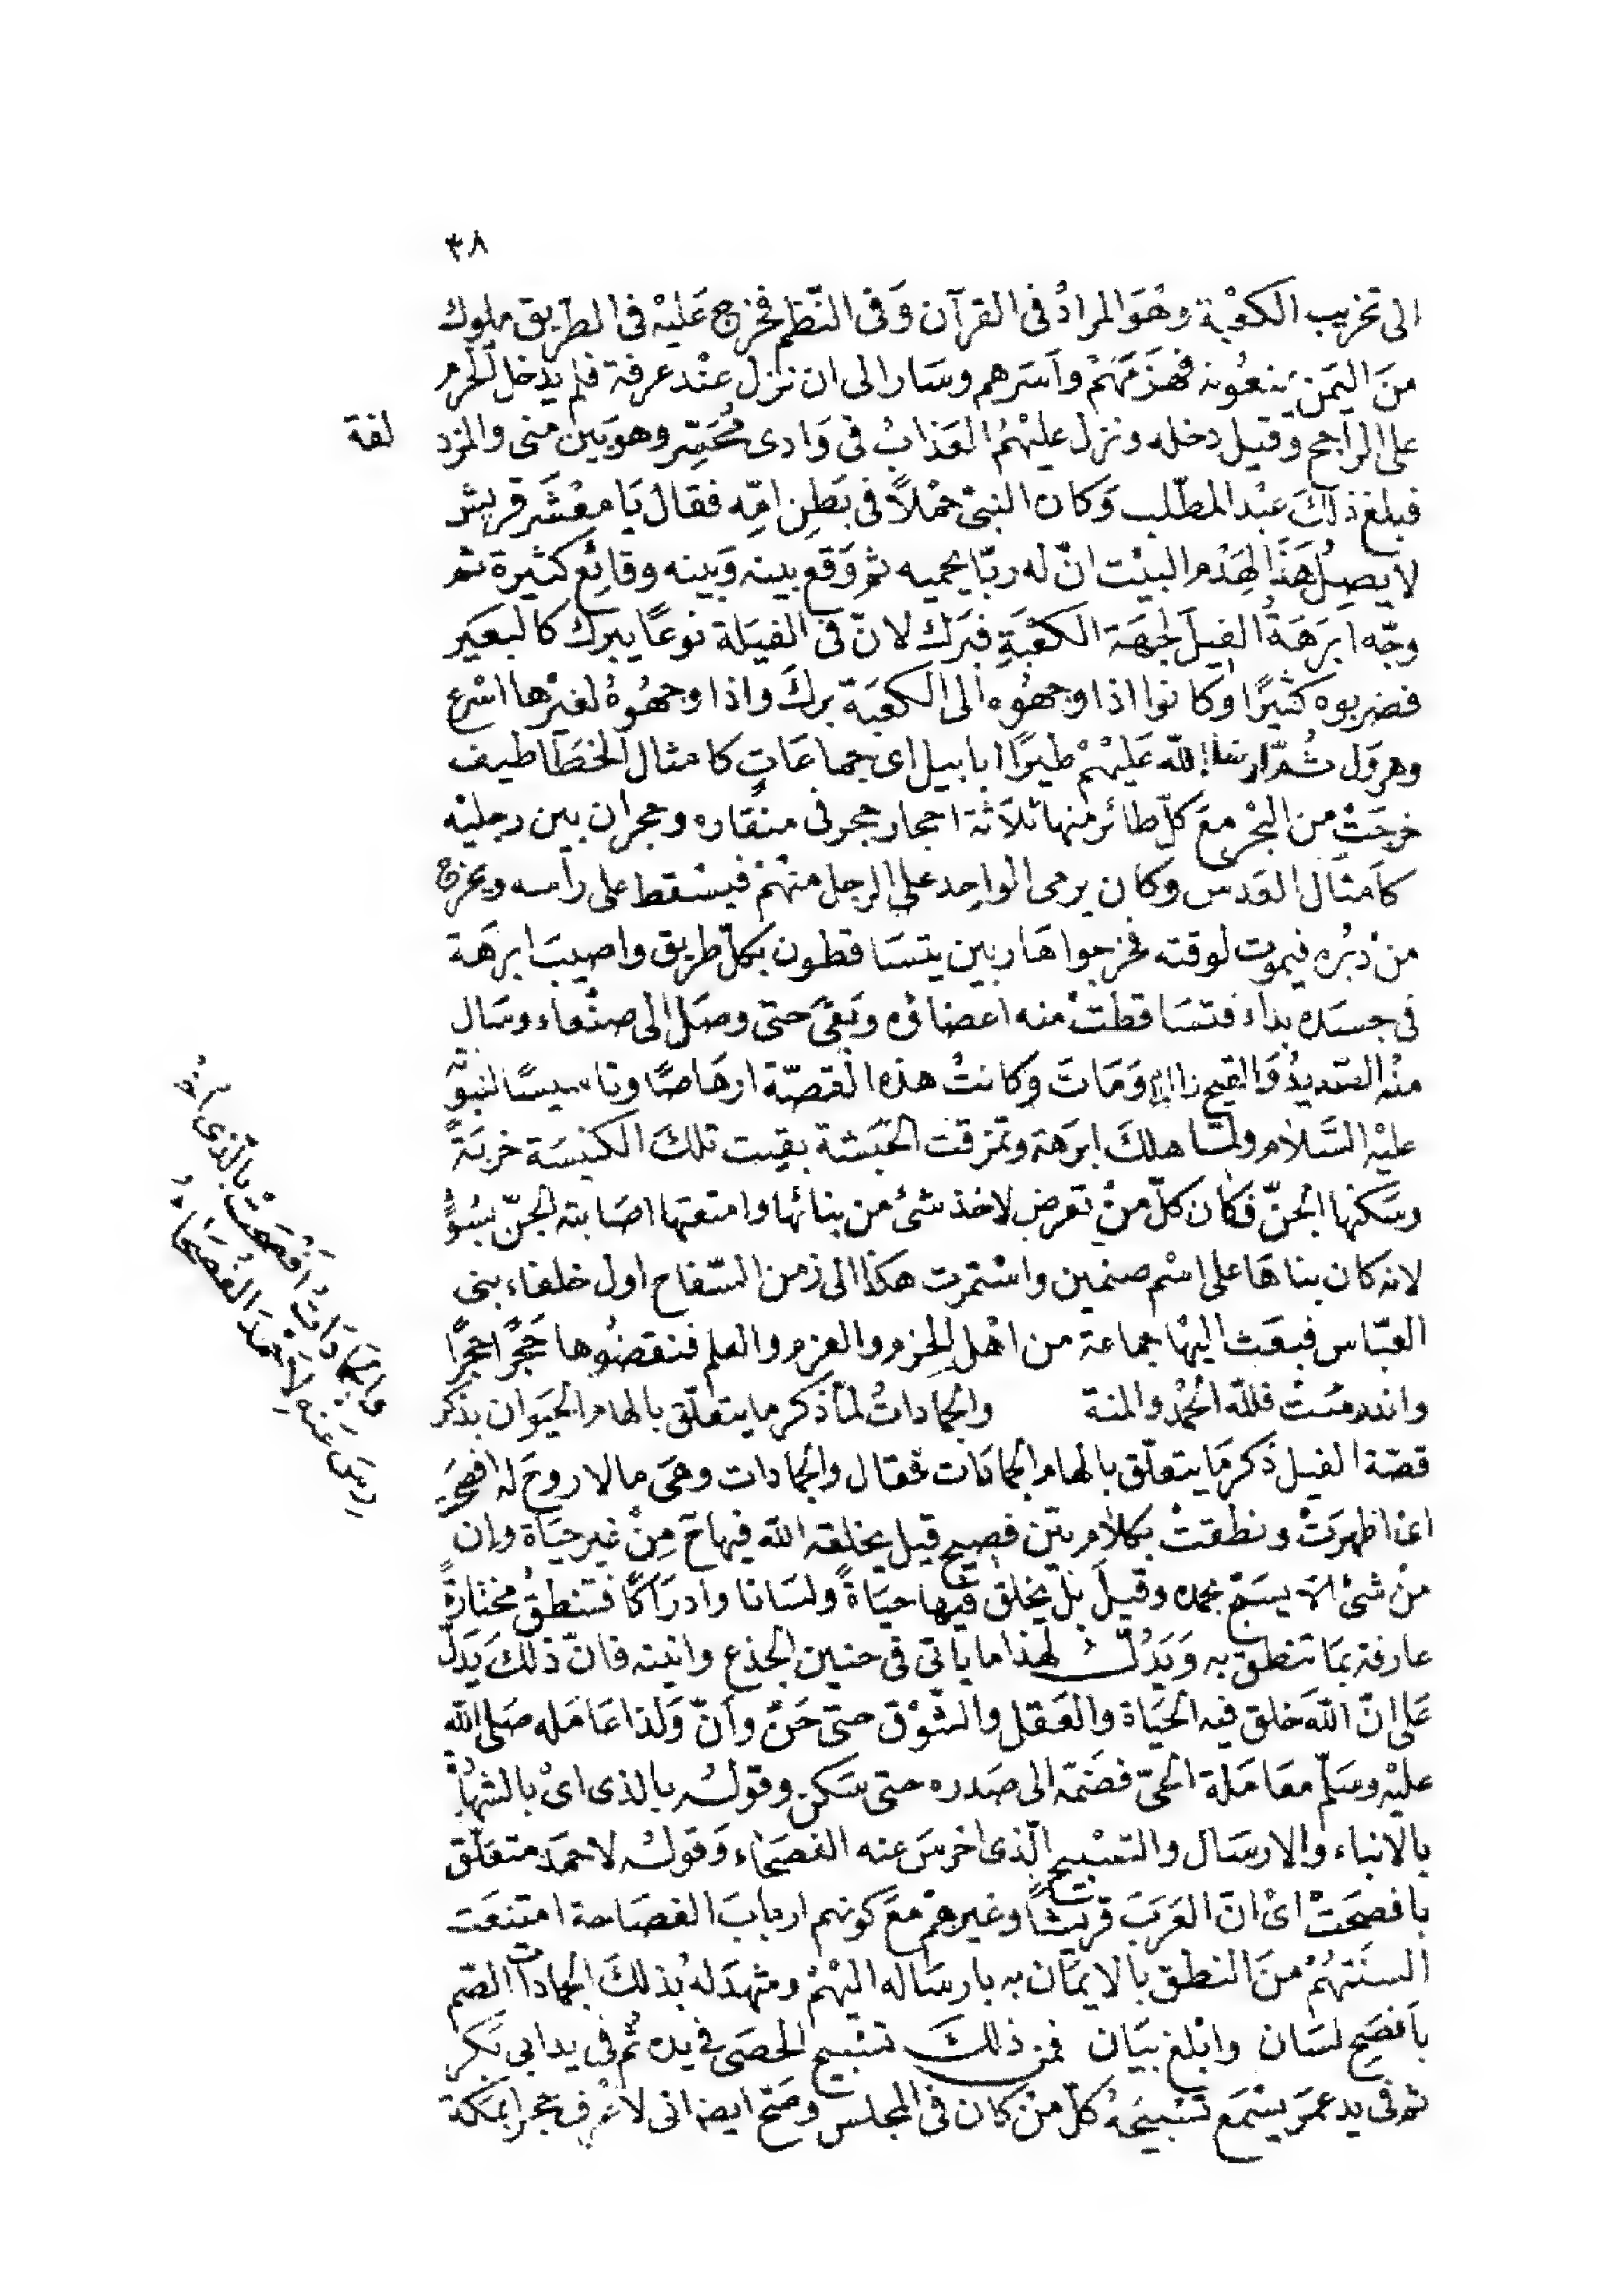 ٣٨
الى تخريب الكعْبة وهُوَ المرادُ فى القرآن وَفى النّظم فخرج عَليْه فى الطريق ملوك
منَ اليمَن يمنعُونه فهزَمَهُمْ وأسَرهم وسَار الى ان نزل عنْد عرفة فلم يدخل الحرم
على الراجح وقيل دخله ونزل عليْهمُ العَذابُ فى وَادى مُحَسّر وهو بَين منى والمزد
لفة
فبلغ ذلكَ عبْد المطّلب وَكان النبىّ حمْلاً فى بَطنِ امّه فقالَ يَا معْشَر قريش
لا يصلُ هَذا لهَدْم البيْت انّ له ربّا يحميه ثم وَقع بينه وَبينه وقائِع كثيرة ثم
وجّه ابرَهَةُ الفيلَ لجهَة الكعْبَةِ فبَرَك لانّ فى الفيَلة نوعًا يبرك كالبعَير
فضربوه كثيرًا وكانوا اذا وجهوُه الى الكعبَة بركَ واذا وجهُوهُ لغيْرها اسْرع
وهروَل ثُمّ ارسَل الله عَليْهمْ طيرًا ابابيل اى جماعَاتٍ كامثال الخطَاطيف
خرجَتْ من البحْر معَ كلّ طائر منها ثلاَثة احجار حجر فى منْقاره وحجران بين رجليْه
كاَمثالَ العَدس وكان يرمى الواحِد على الرجل منْهمْ فيسْقط على رأسه ويخرق
منْ دبُره فيموت لوقته فخرجوا هَاربين يتسَاقطون بكلّ طريق واصيبَ ابرهَة
فى جسَده بداء فتسَاقطتْ منه اعضاؤه وبَقىَ حتى وصَل الى صنْعاء وسَال
منْه الصّديدُ وَالقيح والدم وَمَاتَ وكانتْ هذه القصّة ارهَاصًا وتاسيسًا لنبوّته
عليْه السَّلام ولمّا هلكَ ابرَهَة وتمزقت الحَبَشة بقيت تلكَ الكنيسَة خربَةً
وسَكنها الجنّ فكان كلّ منْ تعرض لاخذ شئ من بنائها وامتعتها اصَابته الجنّ بسُوْءٍ
لانه كان بناهَا على اسْم صنمين واسْتمرت هكذا الى زمن السّفاح اول خلفاء بنى
العبّاس فبعَث اليْها جماعة من اهْل الحزم والعزم والعلم فنقضُوها حَجَرًا حجَرًا
واندرسَتْ فللّه الحمْد والمنة والجمادَاتُ لمّا ذكر ما يتعلّق بالهام الحَيوَان بذكر
قصّة الفيل ذكر مَا يتعلّق بالهام الجمادَات فقال والجمادات وهىَ ما لا روحَ له افصَحَتْ
اىْ اظهرَتْ ونطقتْ بكلاَم بيّن فصيح قيل يخلقه الله فيها مِنْ غير حيَاة وإن
منْ شئ الاّ يسبّح بحمده وقيلَ بلْ يخلق فيها حيَاةً ولسَانا وادرَاكًا فتنطقُ مختارةً
عارفة بمَا تنطق به وَيَدُلّ لهذا ما يأتى فى حنين الجذع وانينه فانّ ذلكَ يَدَلّ
عَلى انّ اللهَ خلق فيه الحيَاة والعَقل والشّوْق حتى حَنّ وأنّ وَلذا عَامَله صَلى الله
عليْه وسَلّم معَامَلة الحىّ فضَمّه الى صَدره حتى سَكن وقولُه بالذى اىْ بالشهَادة
بالانباء والارسَال والتسْبيح الّذى اخرسَ عنه الفصَحاء وَقولُه لاحمَدَ متعَلّق
بافصحَتْ اىْ انّ العَرَبَ قريْشاً وغيرهمْ معَ كونهم اربابَ الفصَاحة امتنعَت
السنَتهُمْ منَ النطق بالايمَان به بارسَاله اليْهمْ وشهدَ لهُ بذلكَ الجمادَاتُ الصّم
بأفصَح لسَان وابْلغ بيَان فمن ذلكَ تسْبيح الحصَى فى يده ثُمّ فى يد ابى بَكر
ثم فى يد عمَرَ يسْمَع تسْبيحَهُ كلّ منْ كان فى المجْلس وصَحّ ايضا انى لاعْرف حجرا بمَكة
والجمَادَاتُ أفْصَحَتْ بالّذى أُخْ
رِسَ عَنه لِأَحْمَدَ الفُصَحَاءُ